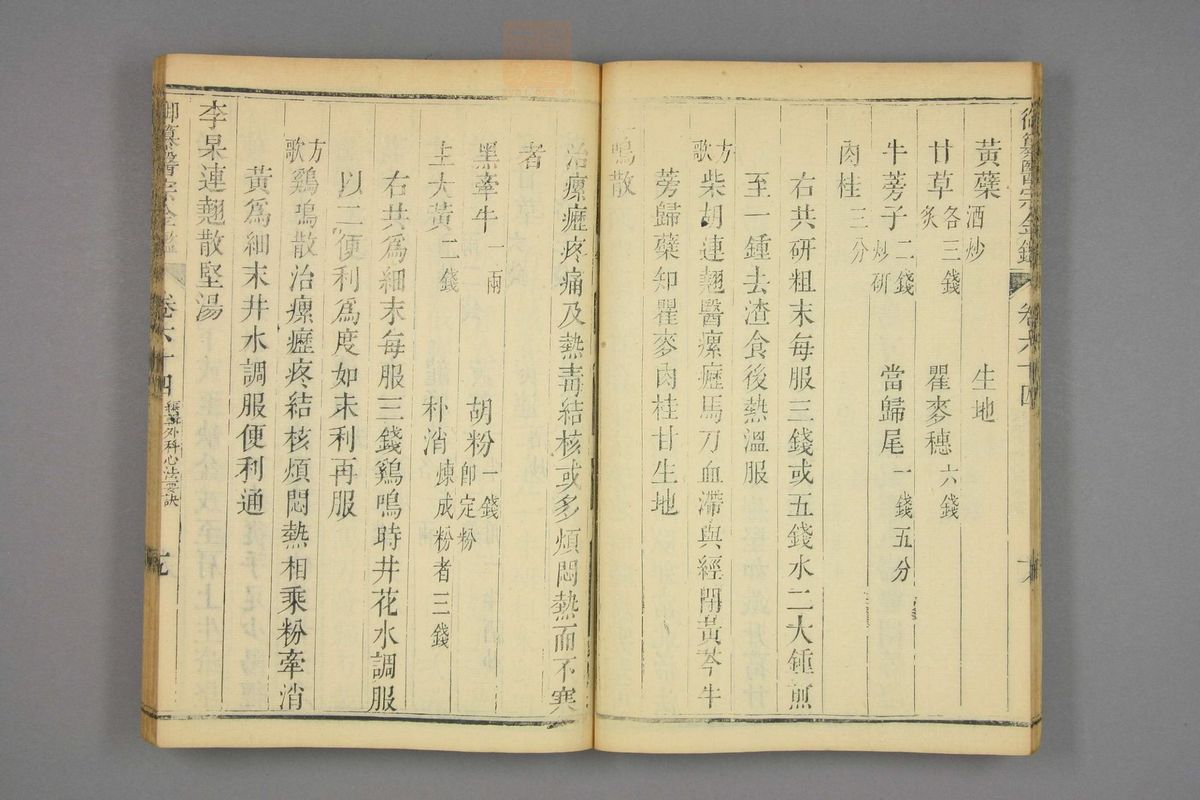 御纂醫宗金鑑 卷六十四
黃蘗酒炒 生地
甘草炙各三錢 瞿麥穗六錢
牛蒡子炒研二錢 當歸尾一錢五分
肉桂三分
右共研粗末每服三錢或五錢水二大鍾煎
至一鍾去渣食後熱溫服
方歌 柴胡連翹醫瘰癧馬刀血滯與經閉黃芩牛
蒡歸蘗知瞿麥肉桂甘生地
鳴散
治瘰癧疼痛及熱毒結核或多煩悶熱而不寒
者
黑牽牛一兩 胡粉一錢即定粉
生大黃二錢 朴消煉成粉者三錢
右共爲細末每服三錢鷄鳴時井花水調服
以二便利爲度如未利再服
方歌 鷄鳴散治瘰癧疼結核煩悶熱相乘粉牽消
黃爲細末井水調服便利通
李杲連翹散堅湯
御纂醫宗金鑑 卷六十四 編輯外科心法要訣 九